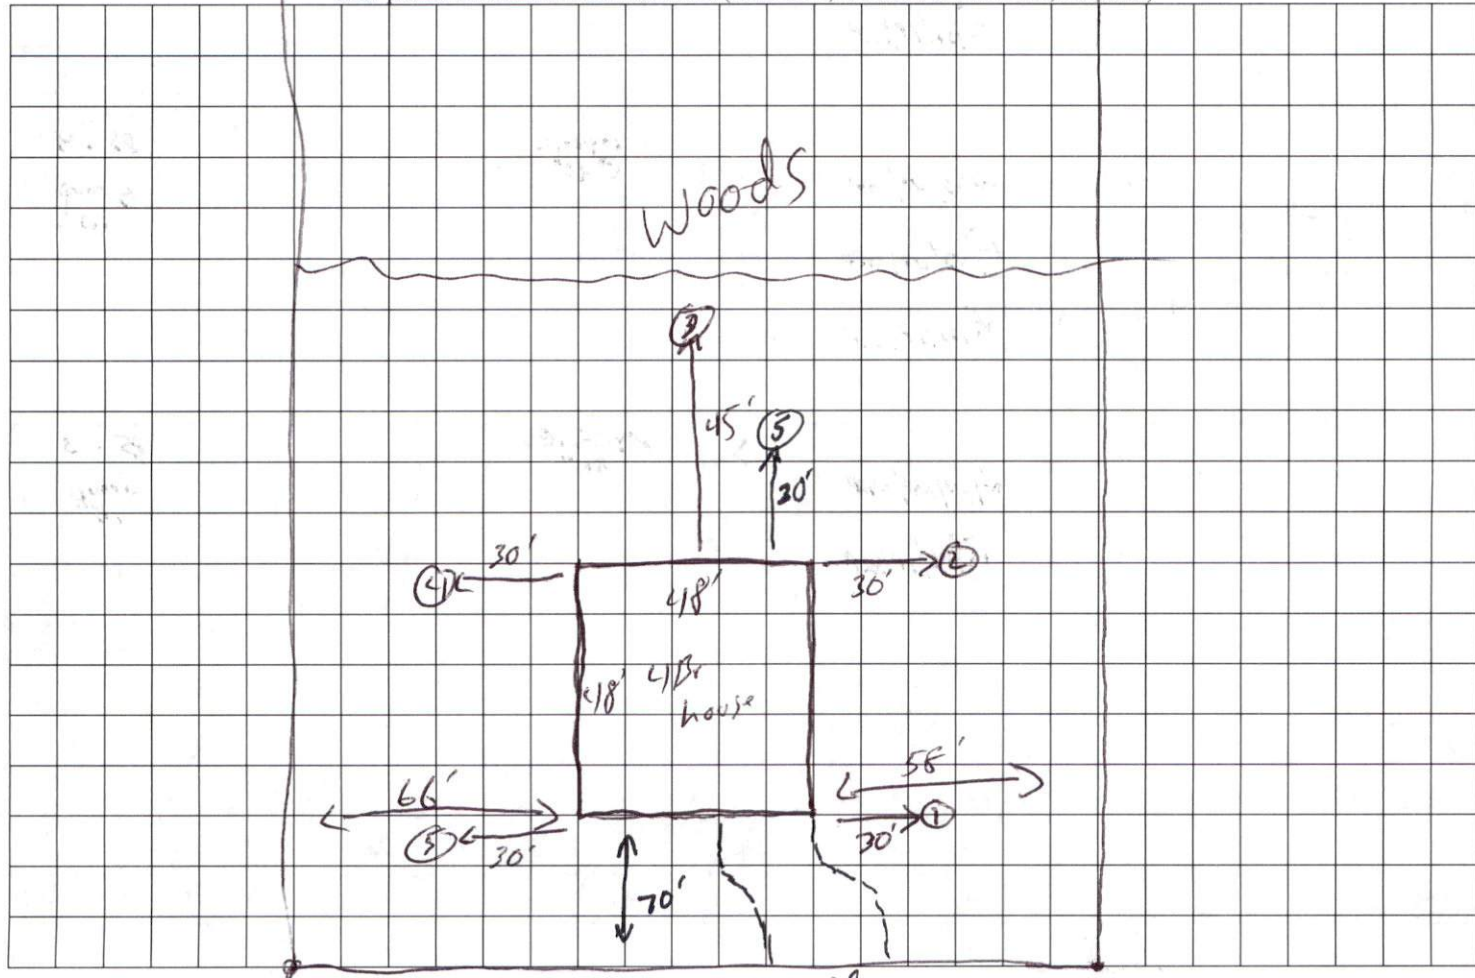 Woods
3
45'
5
30'
30'
4
30'
2
48'
48'
4Br
house
66'
58'
5
30'
30'
1
70'